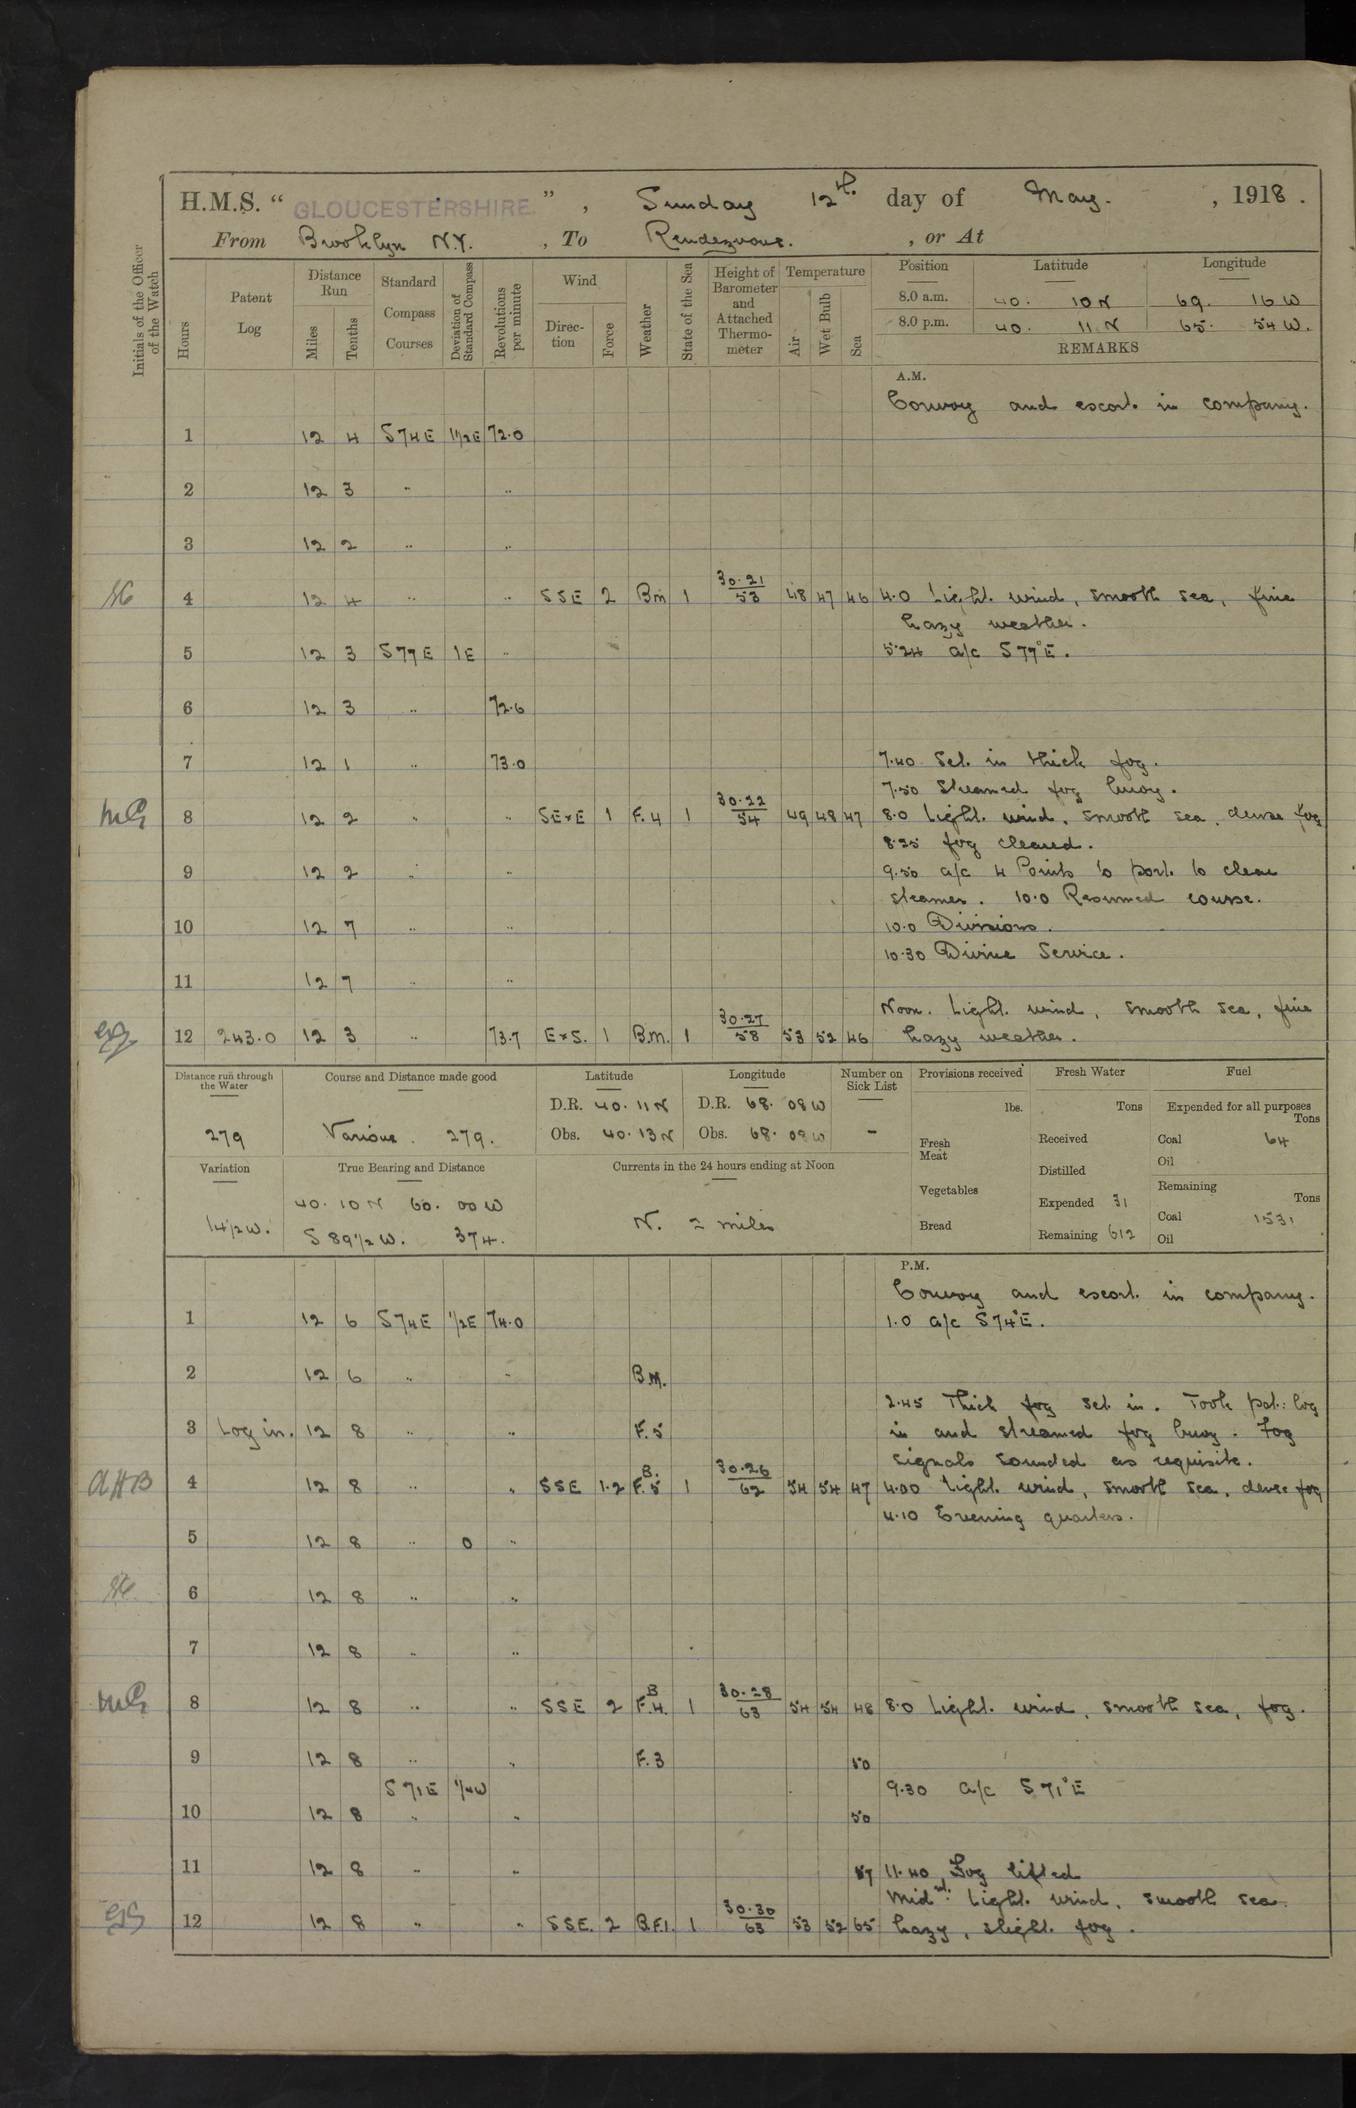 H.M.S. “ GLOUCESTERSHIRE ”, Sunday 12th day of May. , 1918.
From Brooklyn N.Y. , To Rendezvous. , or At
Initials of the Officer of the Watch
Hours
Patent Log
Distance Run
Miles
Tenths
Standard Compass Courses
Deviation of Standard Compass
Revolutions per minute
Wind
Direction
Force
Weather
State of the Sea
Height of Barometer and Attached Thermometer
Temperature
Air
Wet Bulb
Sea
Position Latitude Longitude
8.0 a.m. 40. 10 N 69. 16 W
8.0 p.m. 40. 11 N 65. 54 W.
REMARKS
A.M.
Convoy and escort in company.
1 12 4 S74E 1½E 72.0
2 12 3 " "
3 12 2 " "
4 12 4 " " SSE 2 Bm 1 30.21/53 48 47 46 4.0 Light wind, smooth sea, fine
hazy weather.
5 12 3 S77E 1E " 5.24 a/c S77°E.
6 12 3 " 72.6
7 12 1 " 73.0 7.40 Set in thick fog.
7.50 Streamed fog buoy.
8 12 2 " " SE×E 1 F.4 1 30.22/54 49 48 47 8.0 Light wind, smooth sea, dense fog
8.25 fog cleared.
9 12 2 " " 9.50 a/c 4 Points to port to clear
steamer. 10.0 Resumed course.
10 12 7 " " 10.0 Divisions.
10.30 Divine Service.
11 12 7 " "
Noon. Light wind, smooth sea, fine
12 243.0 12 3 " 73.7 E×S. 1 B.M. 1 30.27/58 53 52 46 hazy weather.
Distance run through the Water
279
Course and Distance made good
Various. 279.
Latitude
D.R. 40. 11 N
Obs. 40. 13 N
Longitude
D.R. 68. 08 W
Obs. 68. 08 W
Number on Sick List
-
Provisions received
lbs.
Fresh Meat
Vegetables
Bread
Fresh Water
Tons
Received
Distilled
Expended 31
Remaining 612
Fuel
Expended for all purposes
Tons
Coal 64
Oil
Remaining
Tons
Coal 1531
Oil
Variation
14½W.
True Bearing and Distance
40. 10 N 60. 00 W
S 89½ W. 374.
Currents in the 24 hours ending at Noon
N. 2 miles
P.M.
Convoy and escort in company.
1 12 6 S74E ½E 74.0 1.0 a/c S74°E.
2 12 6 " " B.M.
2.45 Thick fog set in. Took pat: log
3 Log in. 12 8 " " F.5 in and streamed fog buoy. Fog
signals sounded as requisite.
AHB 4 12 8 " " SSE 1.2 B. F.5 1 30.26/62 54 54 47 4.00 Light wind, smooth sea, dense fog
4.10 Evening quarters.
5 12 8 " 0 "
6 12 8 " "
7 12 8 " "
8 12 8 " " SSE 2 B F.4. 1 30.28/63 54 54 48 8.0 Light wind, smooth sea, fog.
9 12 8 " " F.3 50
S71E ¼W 9.30 a/c S71°E
10 12 8 " " 50
11 12 8 " " 57 11.40 Fog lifted
Midnt: Light wind, smooth sea
12 12 8 " " SSE. 2 B.F.1. 1 30.30/63 53 52 65 hazy, slight fog.